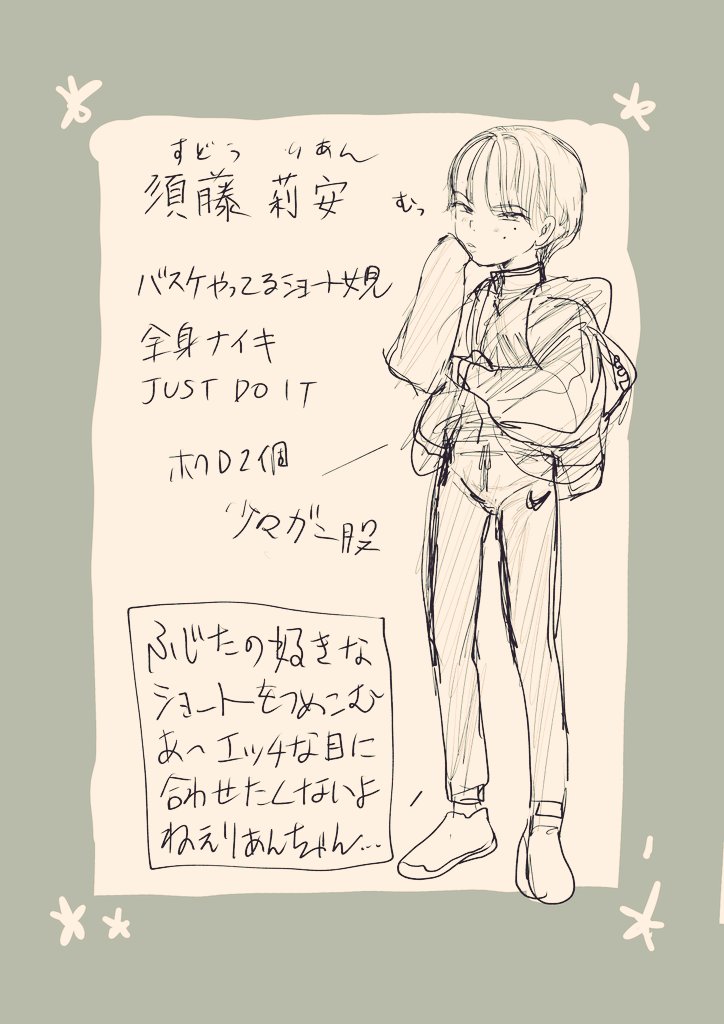 すどう りあん
須藤 莉安
むっ
バスケやってるショート女児
全身ナイキ
JUST DO IT
ホクロ2個
少しマガニ股
ふじたの好きな
ショートをつめこむ
あへエッチな目に
合わせたくないよ
ねぇりあんちゃん…